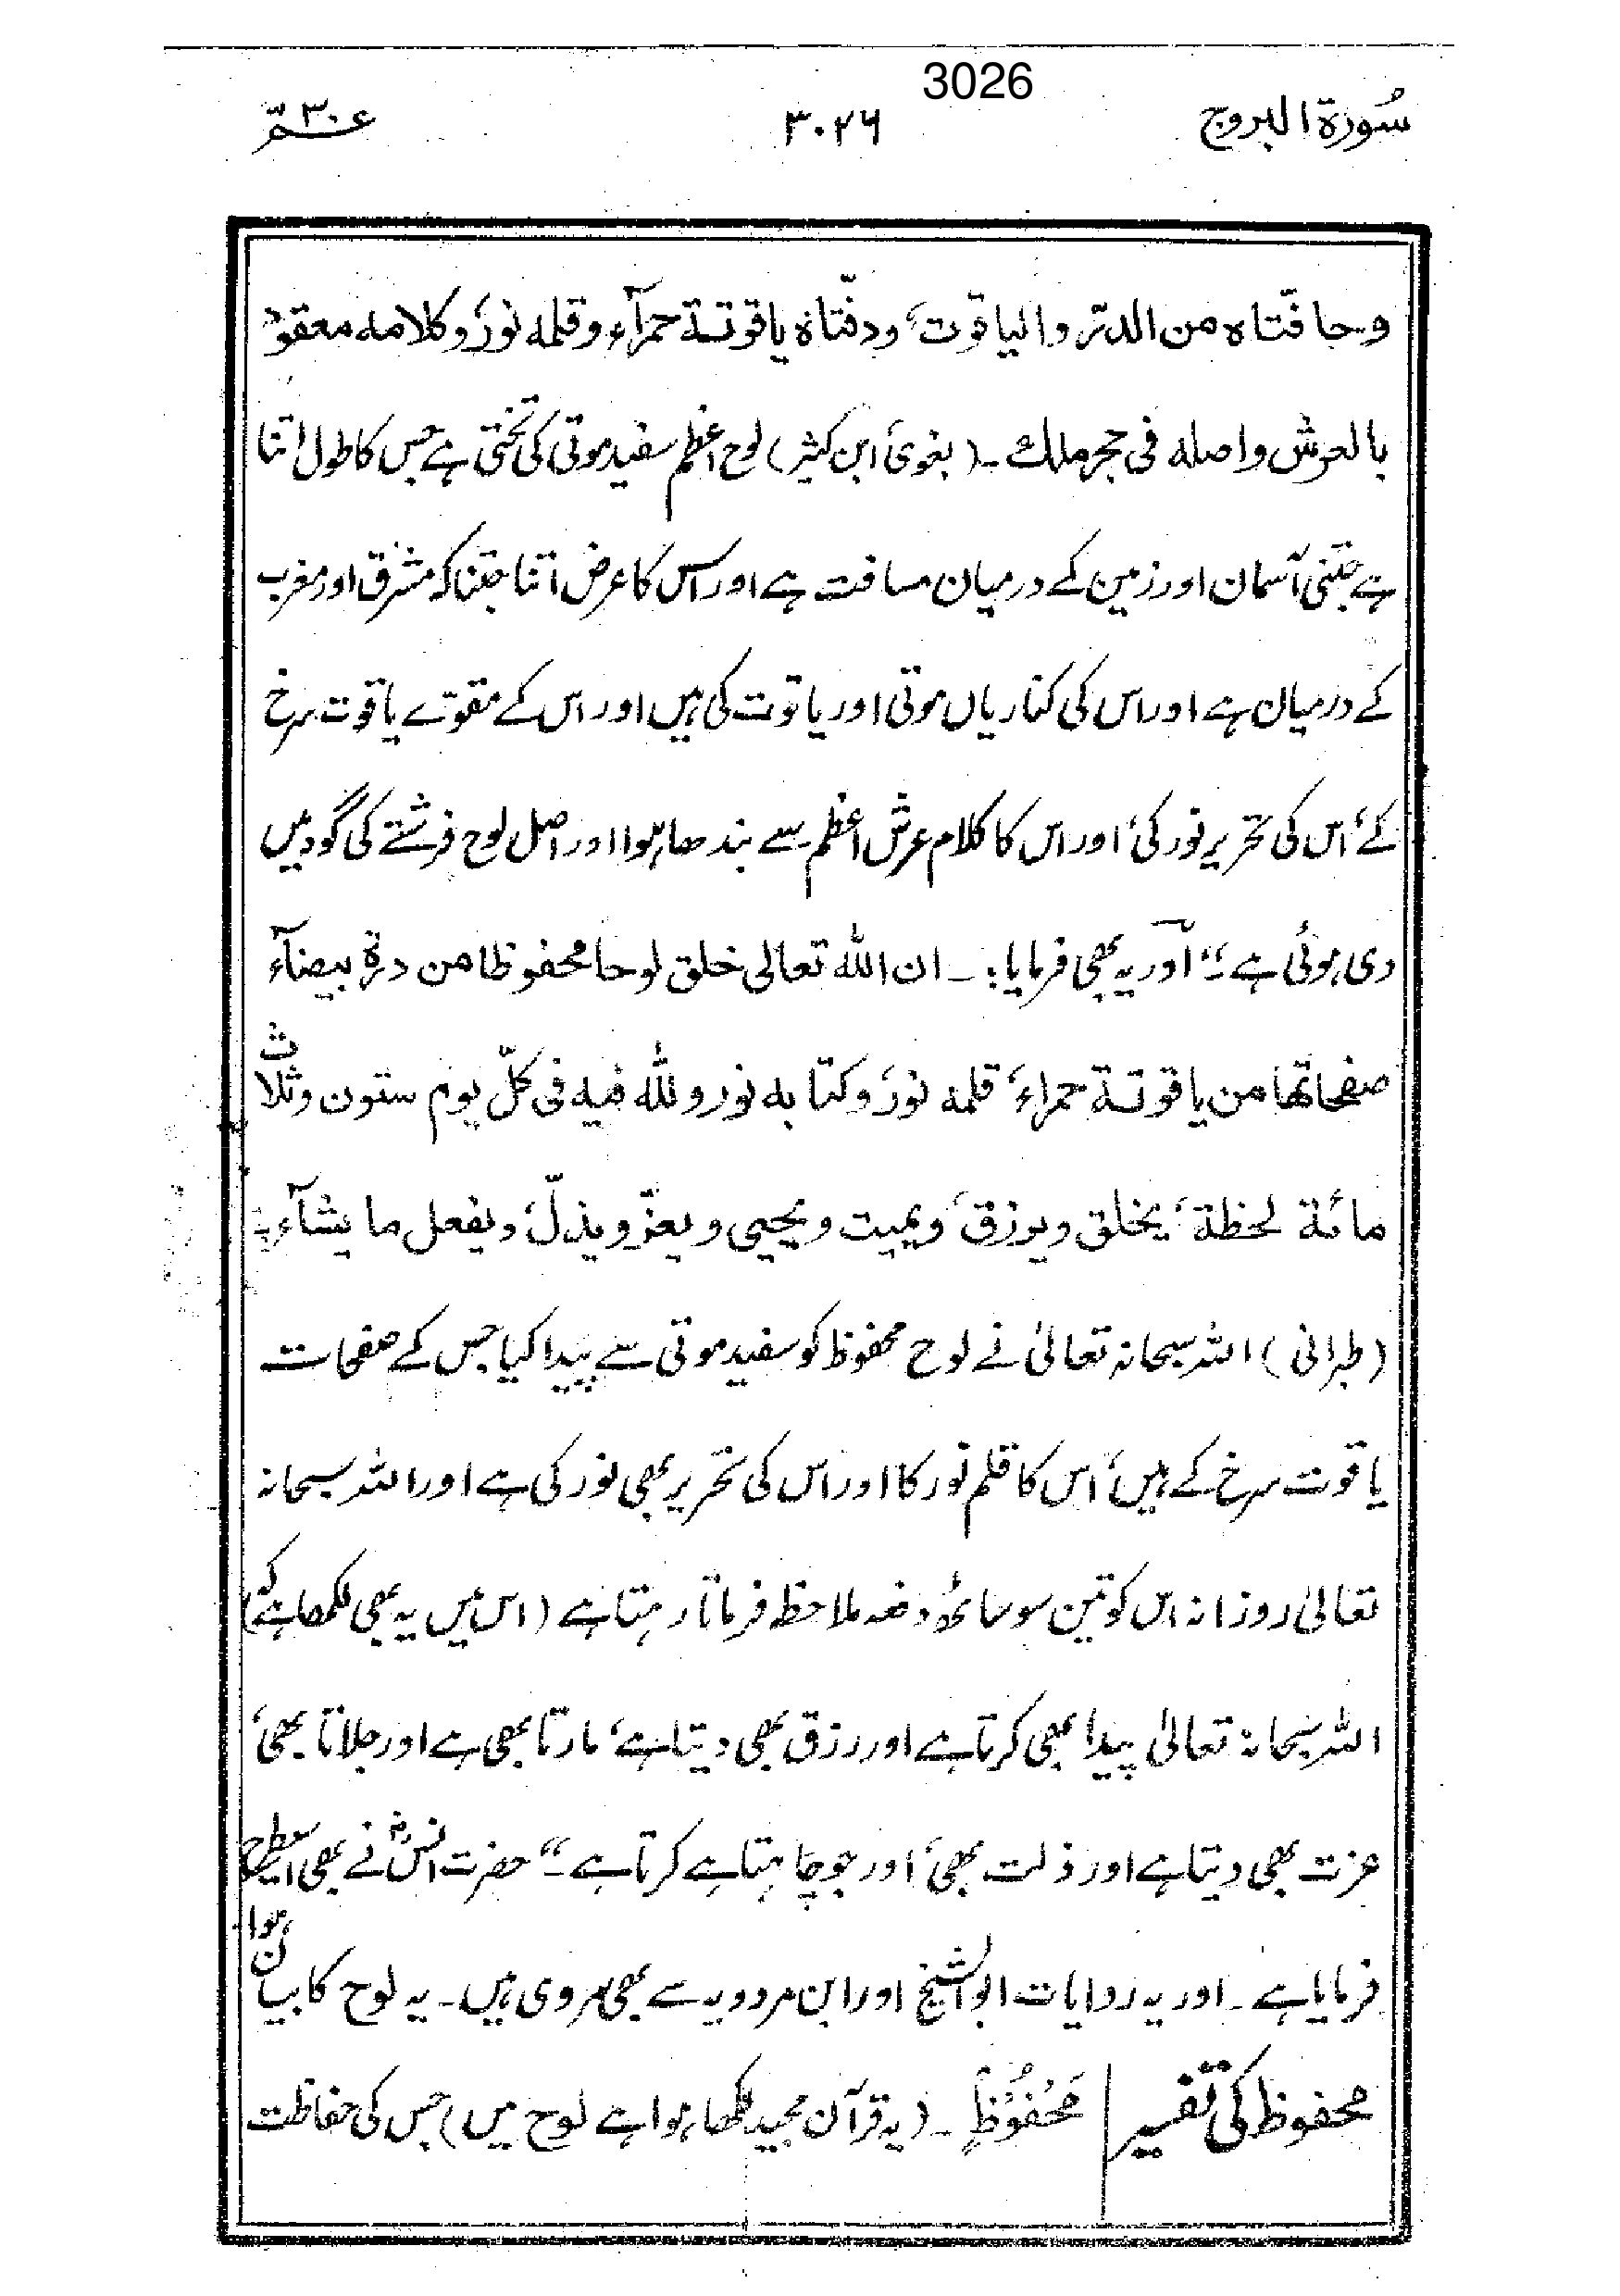 3026
سُورۃ البروج ۳۰۲۶ عمّ ۳۰
وحافّتاہ من الدرّ والیاقوت، ودفّتاہ یاقوتة حمرآء وقلمه نور، وکلامه معقود
بالعرش واصله فی حجر ملك ۔ (بغوی، ابن کثیر) لوح اعظم سفید موتی کی تختی ہے جس کا طول اتنا
ہے جتنی آسمان اور زمین کے درمیان مسافت ہے اور اس کا عرض اتنا جتنا کہ مشرق اور مغرب
کے درمیان ہے اور اس کی کناریاں موتی اور یاقوت کی ہیں اور اس کے مقوّے یاقوت سرخ
کے، اس کی تحریر نور کی، اور اس کا کلام عرش اعظم سے بندھا ہوا اور اصل لوح فرشتے کی گود میں
دی ہوئی ہے ۔“ اور یہ بھی فرمایا: ۔ ان اللّٰه تعالی خلق لوحا محفوظا من درة بیضآء
صفحاتها من یاقوتة حمراء، قلمه نور، وکتابه نور وللّٰه فیه فی کلّ یوم ستون وثلاث
مائة لحظة، یخلق ویرزق، ویمیت ویحیی ویعزّ ویذلّ، ویفعل ما یشآء ۔
(طبرانی) اللہ سبحانہ تعالیٰ نے لوح محفوظ کو سفید موتی سے پیدا کیا جس کے صفحات
یاقوت سرخ کے ہیں، اس کا قلم نور کا اور اس کی تحریر بھی نور کی ہے اور اللہ سبحانہ
تعالیٰ روزانہ اس کو تین سو ساٹھ دفعہ ملاحظہ فرماتا رہتا ہے (اس میں یہ بھی لکھا ہے کہ)
اللہ سبحانہ تعالیٰ پیدا بھی کرتا ہے اور رزق بھی دیتا ہے، مارتا بھی ہے اور جلاتا بھی،
عزت بھی دیتا ہے اور ذلت بھی، اور جو چاہتا ہے کرتا ہے ۔“ حضرت انسؓ نے بھی اسی طرح
فرمایا ہے ۔ اور یہ روایات ابوالشیخ اور ابن مردویہ سے بھی مروی ہیں ۔ یہ لوح کا بیان ہوا
محفوظ کی تفسیر | مَحْفُوْظٍ ۔ (یہ قرآن مجید لکھا ہوا ہے لوح میں) جس کی حفاظت